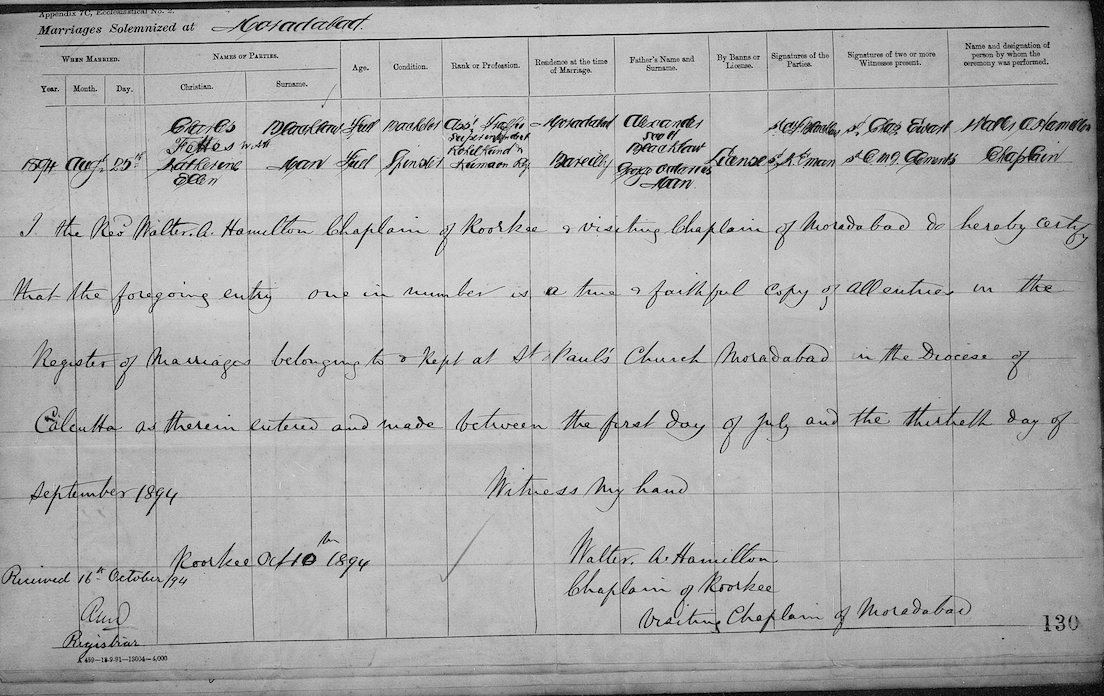 Appendix 7C, Ecclesiastical No. 2.
Marriages Solemnized at Moradabad.
When Married.
Names of Parties.
Age.
Condition.
Rank or Profession.
Residence at the time of Marriage.
Father's Name and Surname.
By Banns or License.
Signatures of the Parties.
Signatures of two or more Witnesses present.
Name and designation of person by whom the ceremony was performed.
Year.
Month.
Day.
Christian.
Surname.
Charles Full Bachelor Asst Traffic Moradabad Alexander Walter A Hamilton
Fettes with Superintendent Scott
Rohilkund &
1894 Augt 25th Katherine Man Full Spinster Kumaon Ry Bareilly George License Chaplain
Ellen Man
I the Revd Walter. A. Hamilton Chaplain of Roorkee & visiting Chaplain of Moradabad do hereby certify
that the foregoing entry one in number is a true & faithful copy of all entries in the
Register of Marriages belonging to & kept at St Paul's Church Moradabad in the Diocese of
Calcutta as therein entered and made between the first day of July and the thirtieth day of
September 1894 Witness my hand
Roorkee Oct 10th 1894 Walter. A. Hamilton
Received 16th October/94 Chaplain of Roorkee
Visiting Chaplain of Moradabad
Registrar
130